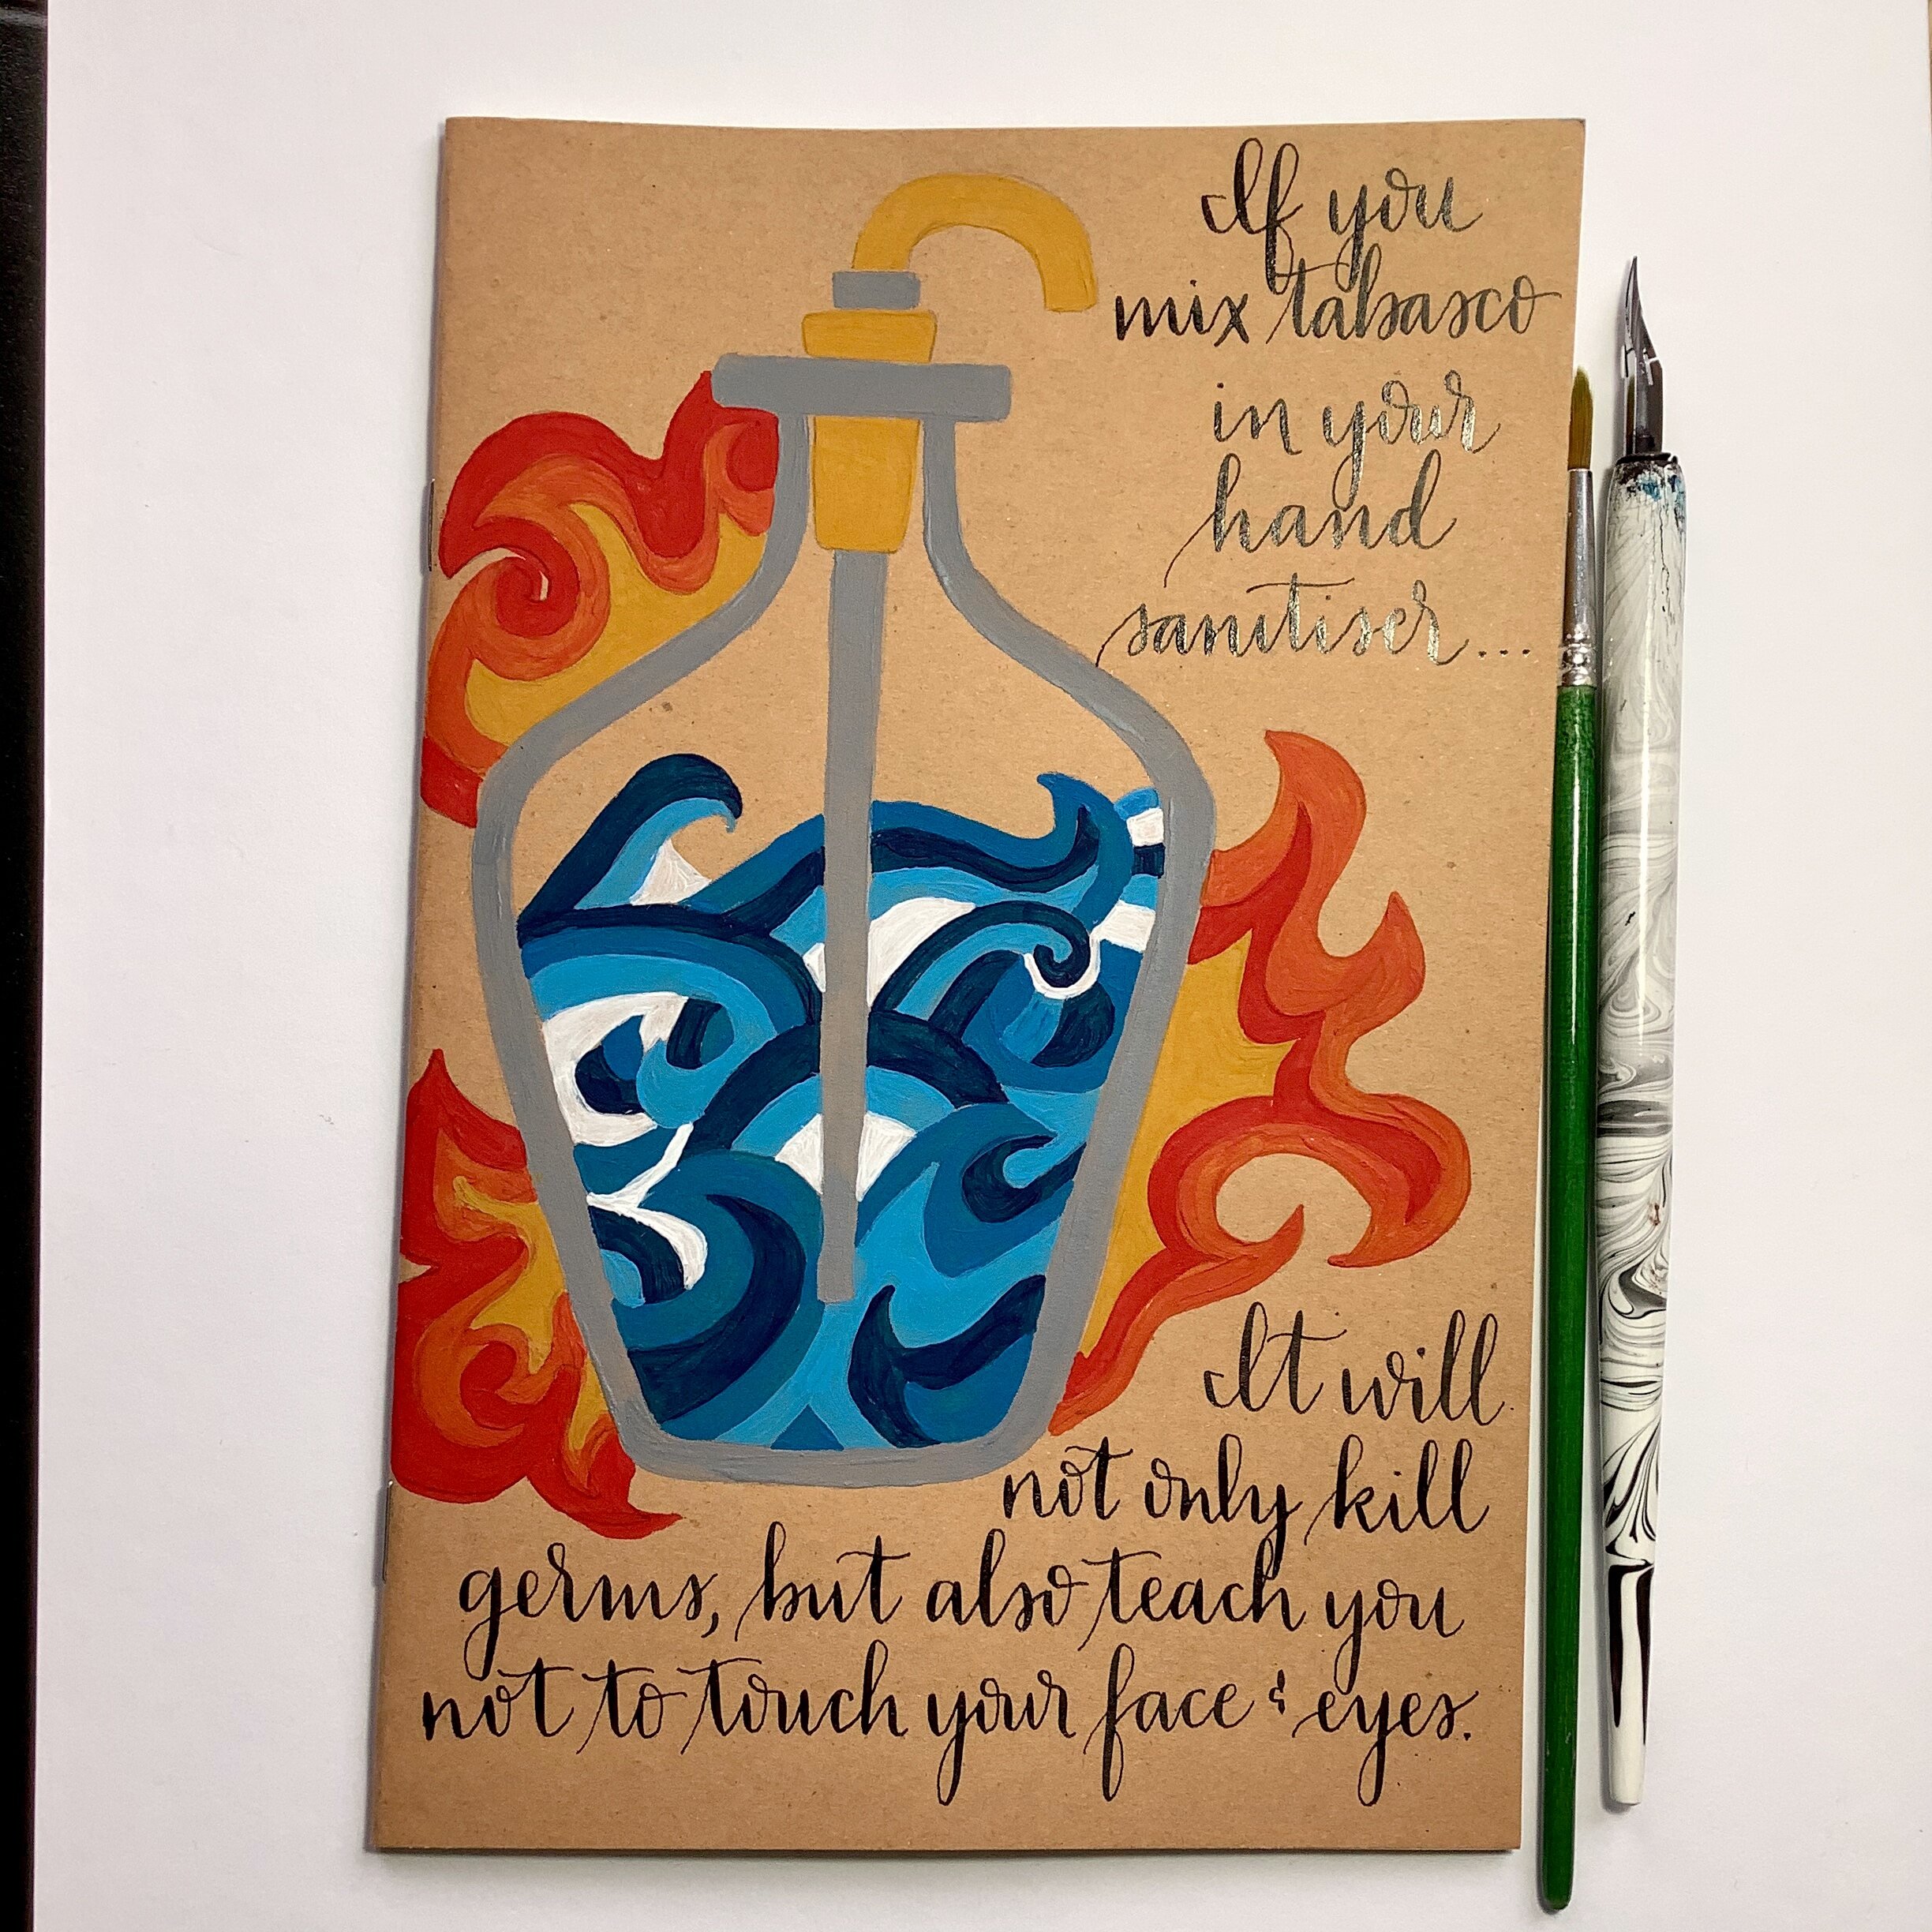 If you
mix tabasco
in your
hand
sanitiser...
It will
not only kill
germs, but also teach you
not to touch your face & eyes.